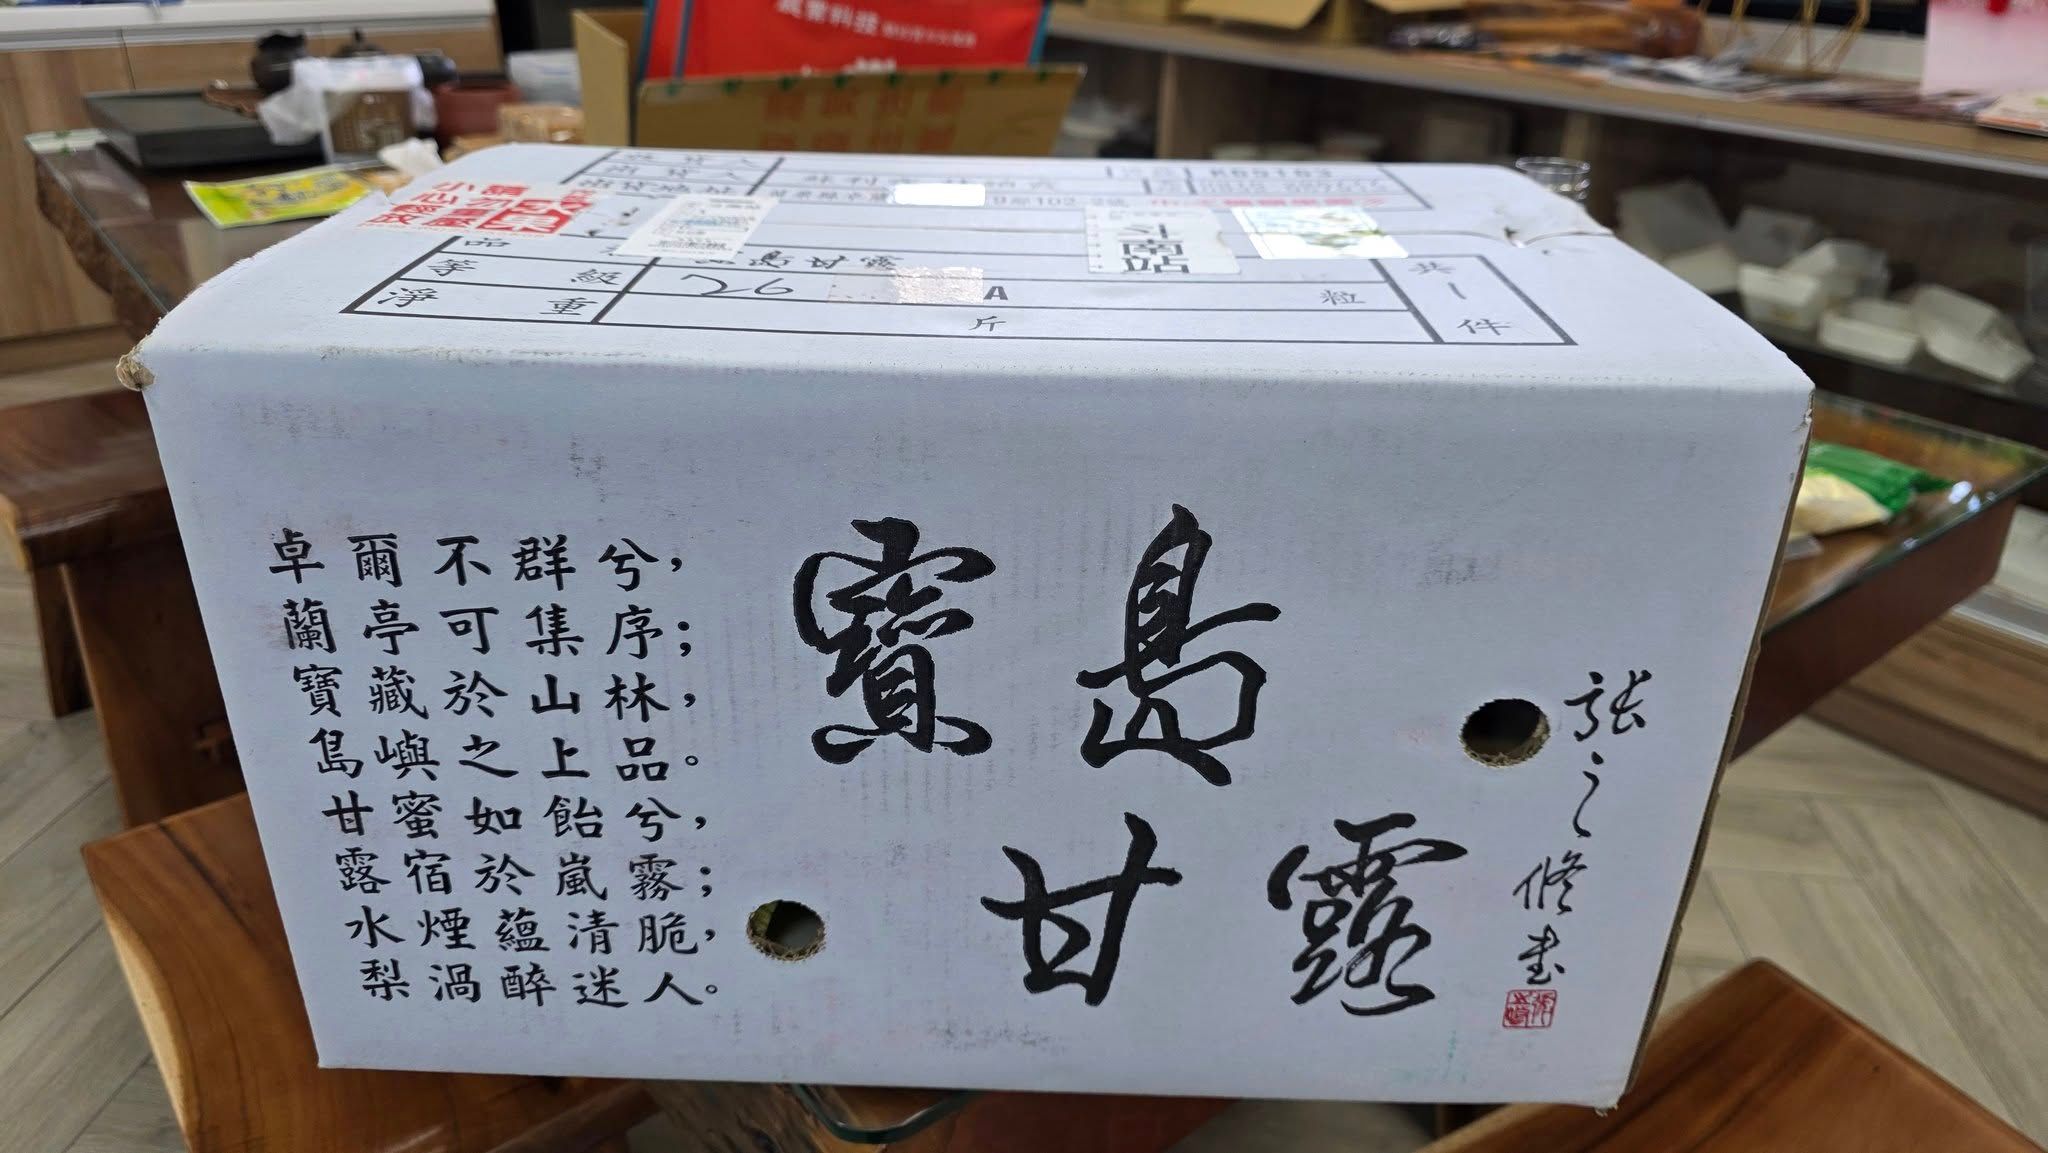 小心
請勿重壓
K09103
斗南站
品
島甘露
等級 26 A 粒
淨重 斤
共1件
卓爾不群兮，
蘭亭可集序；
寶藏於山林，
島嶼之上品。
甘蜜如飴兮，
露宿於嵐霧；
水煙蘊清脆，
梨渦醉迷人。
寶島
甘露
張之修書